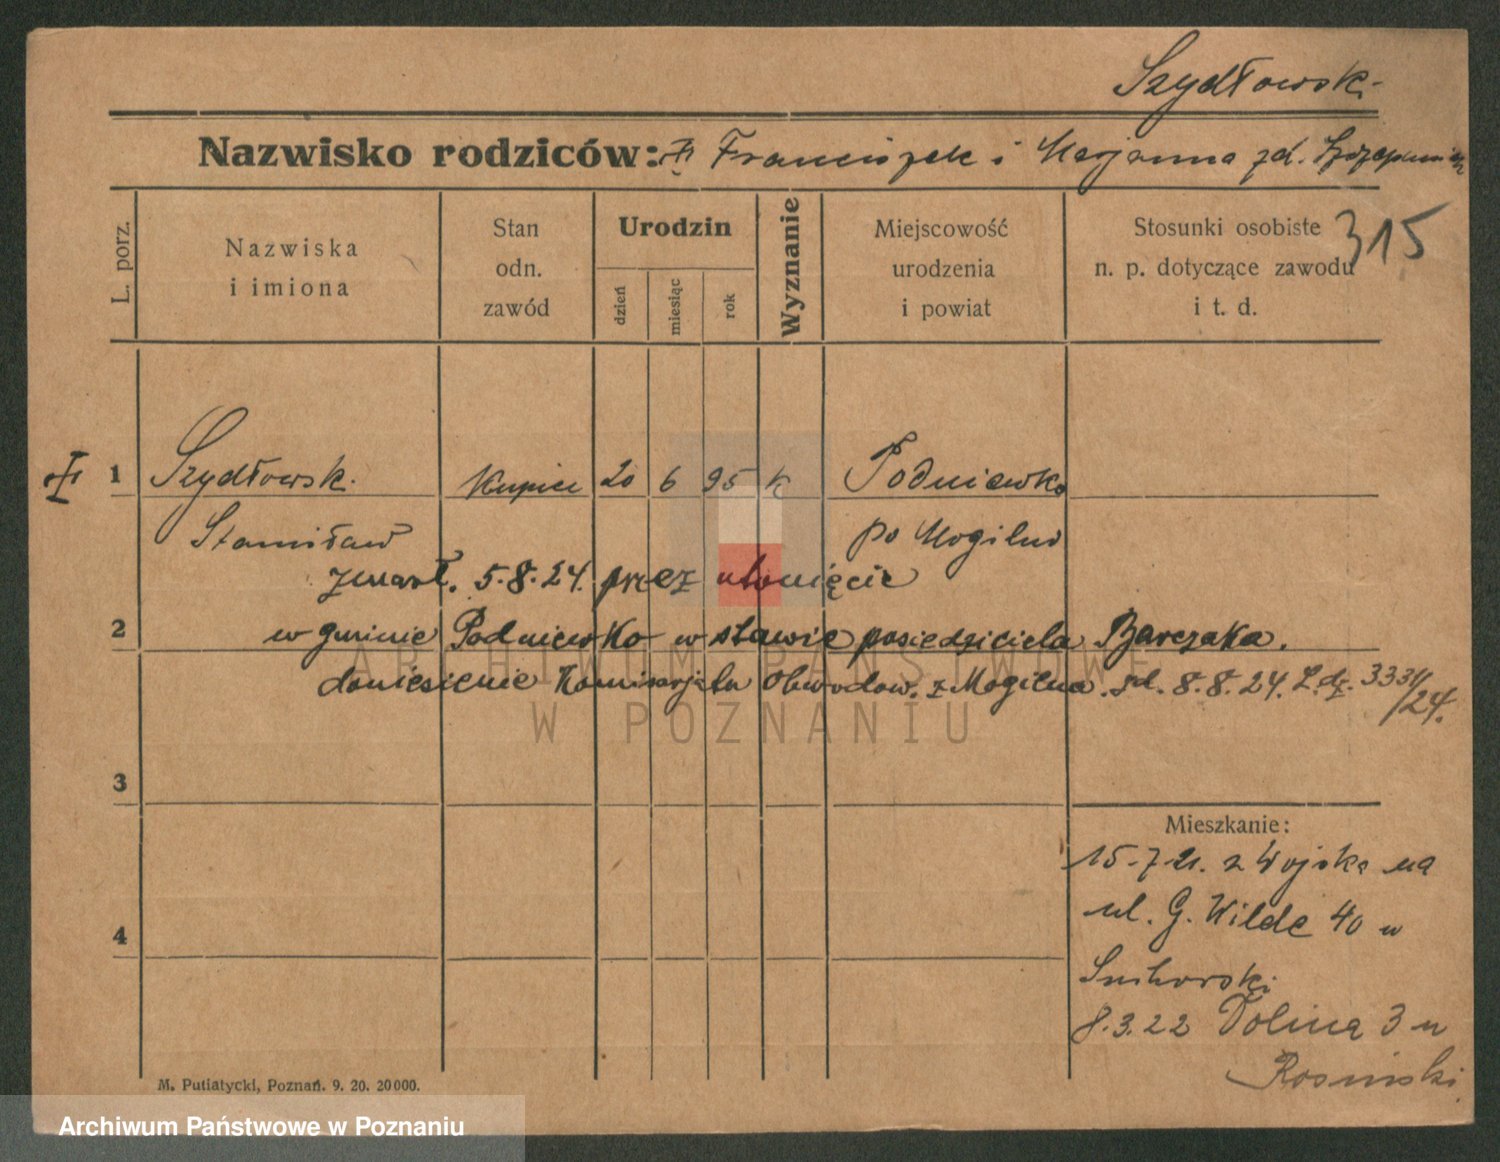 Szydłowski
Nazwisko rodziców: Franciszek i Marjanna zd.
315
L. porz.
Nazwiska
i imiona
Stan
odn.
zawód
Urodzin
dzień
miesiąc
rok
Wyznanie
Miejscowość
urodzenia
i powiat
Stosunki osobiste
n. p. dotyczące zawodu
i t. d.
1 Szydłowski Kupiec 20 6 95 k Podniewko
Stanisław po Mogilno
zmarł. 5.8.24. przez utonięcie
2 w gminie Podniewko w stawie posiedziciela Barczaka.
doniesienie Komisarjatu Obwodow. z Mogilna. zd. 8.8.24. L.dz. 3331/24.
ARCHIWUM PAŃSTWOWE
W POZNANIU
3
4
Mieszkanie:
15-7-21. z Wojska na
ul. G. Wilde 40 u
8.3.22 Dolina 3 u
Rosinski
M. Putiatycki, Poznań. 9. 20. 20000.
Archiwum Państwowe w Poznaniu